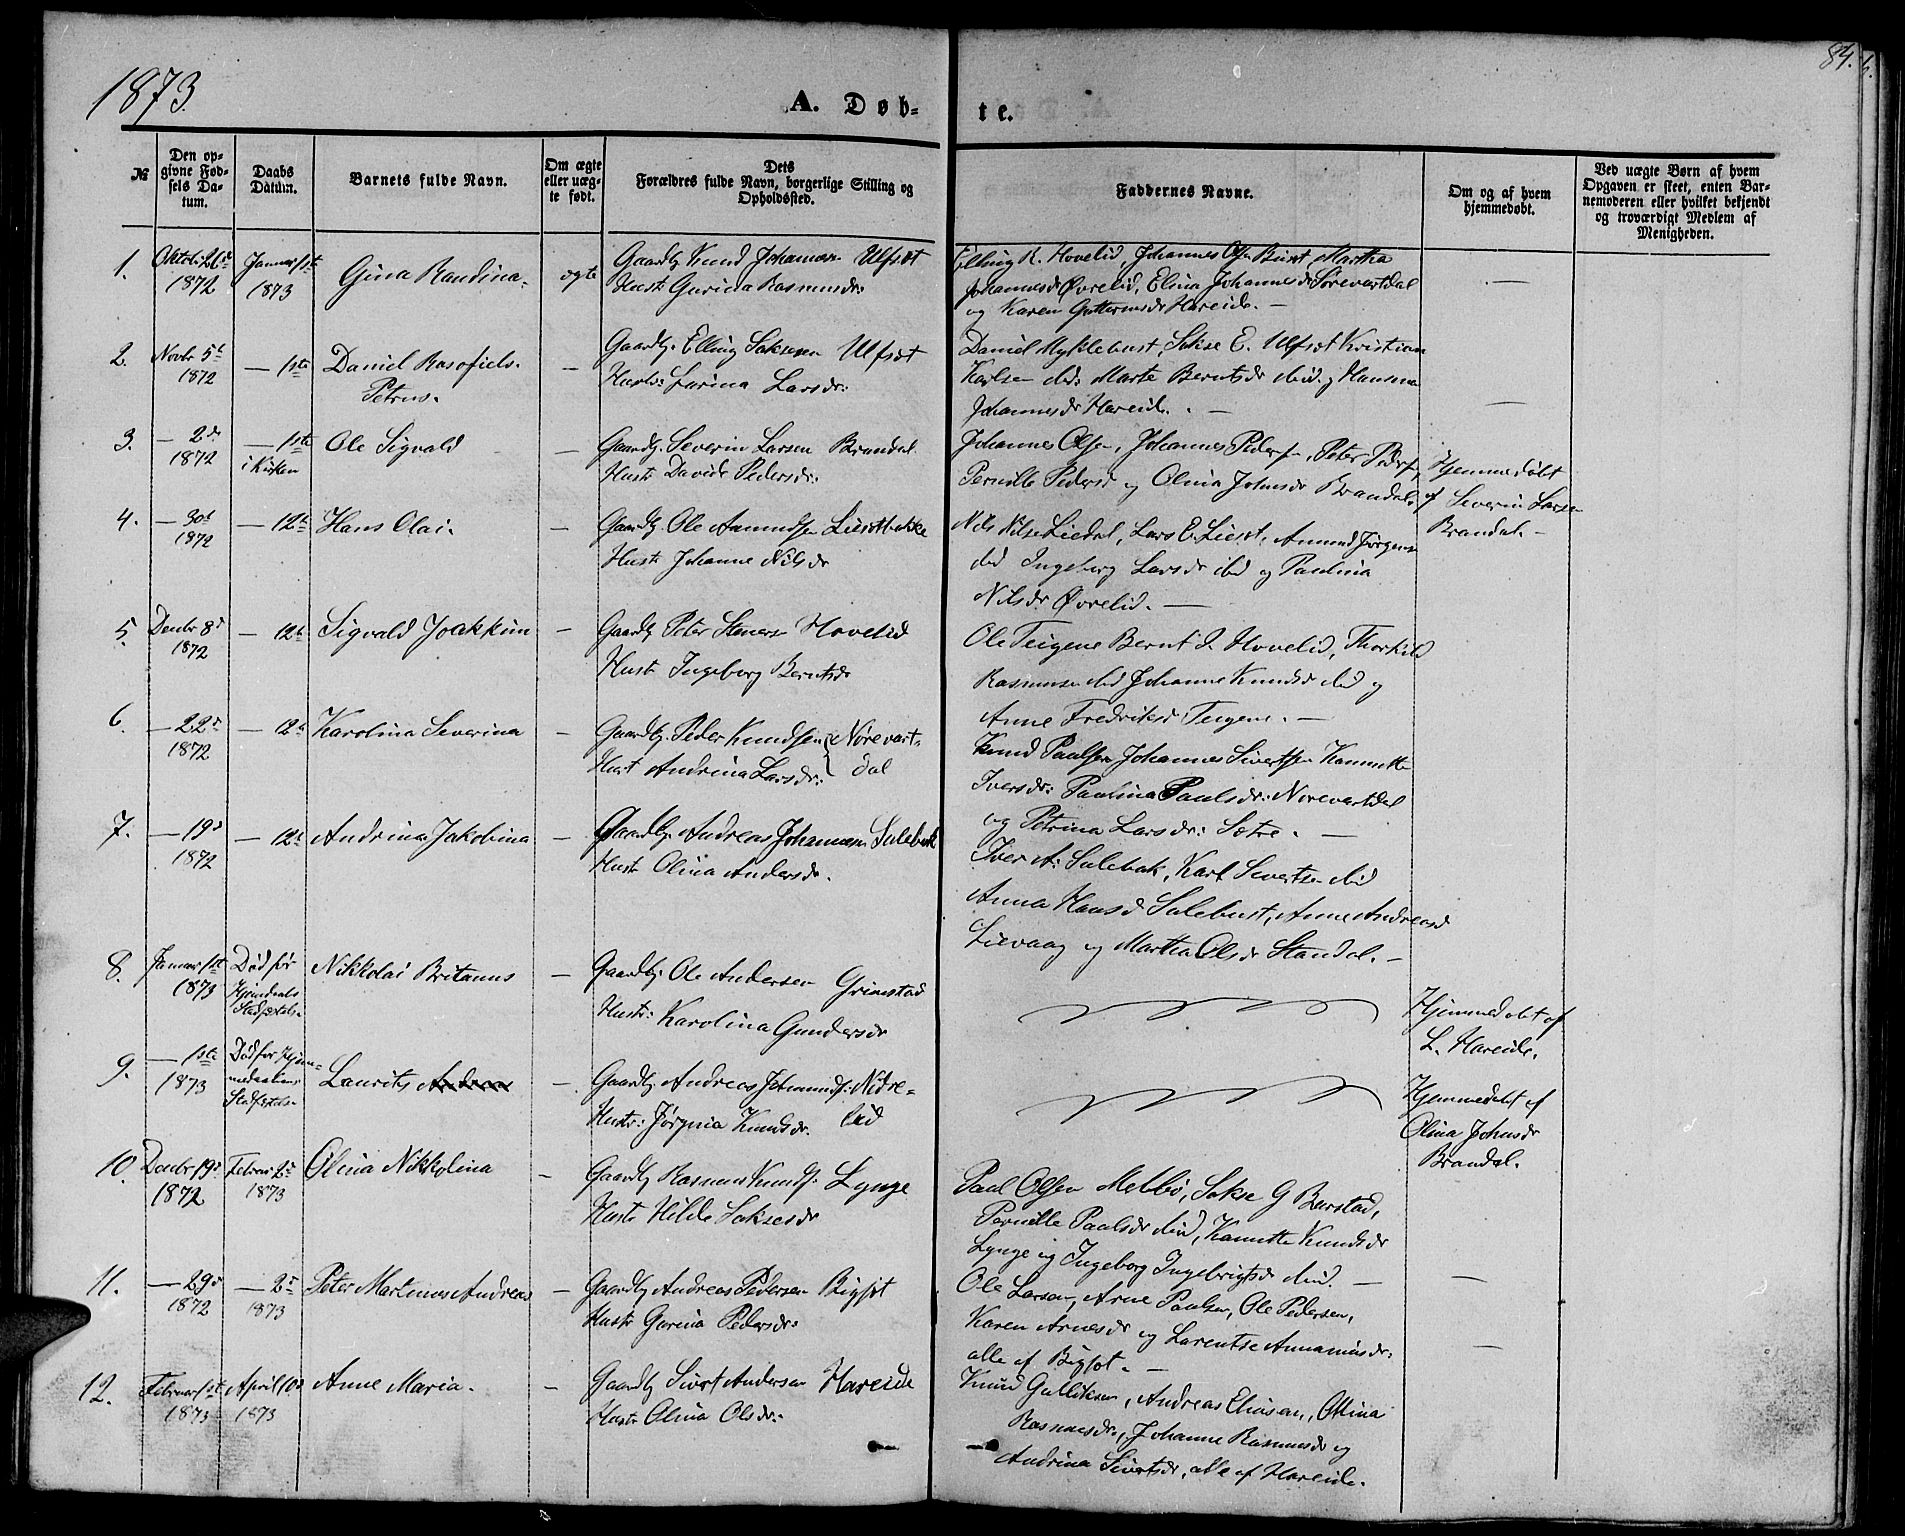 1873.
A. Døb-
te.
84. b.
№
Den op-
givne Fød-
sels Da-
tum.
Daabs
Datum.
Barnets fulde Navn.
Om ægte
eller uæg-
te født.
Dets
Forældres fulde Navn, borgerlige Stilling og
Opholdssted.
Faddernes Navne.
Om og af hvem
hjemmedøbt.
Ved uægte Børn af hvem
Opgaven er skeet, enten Bar-
nemoderen eller hvilket bekjendt
og troværdigt Medlem af
Menigheden.
1.
1872
Januar 1ste
1873
Gina Raudina.
ægte
Gaardb. Knud Johannesen Ulfsæt
Hustr Gurina Rasmusdr:
Elling R. Hovelid, Johannes Olsen Martha
Johannesdr Øvrelid, Elina Johannesdr Sørevartdal
og Karen Guttormsdr Hareide. —
—
2.
Novbr 5t
1872
— 1ste
Daniel
Petrus.
—
Gaardb. Elling Saksesen Ulfsæt
Hustr: Larina Larsdr:
Daniel Myklebust, Sakse E. Ulfsæt Kristian
Karlsen ibid: Marte Berntsdr ibid. og Hansina
Johannesdr Hareide. —
—
3.
— 2d
1872
— 1ste
i Kirken
Ole Sigvald
—
Gaardb. Severin Larsen Brandal
Hustr Davide Pedersdr:
Johannes Olsen, Johannes Peders., Peter Peders.,
Pernille Pedersd og Olina Johnsdr Brandal.
Hjemmedøbt
af Severin Larsen
Brandal. —
4.
— 30t
1872
— 12t
Hans Olai.
—
Gaardb. Ole Aamundsen Liesætbakke
Hustr Johanne Nilsdr
Nils Nilsen Liedal, Lars E. Liesæt, Amund Jørgens
ibid Ingeborg Larsdr ibid og Paulina
Nilsdr Øvrelid. —
5.
Decbr 8d
1872
— 12t
Sigvald Joakkim
—
Gaardb Peter Hovelid
Hustr Ingeborg Berntsdr
Ole Teigene Bernt P. Hovelid, Thorkild
Rasmusen ibid Johanne Knudsdr ibid og
Anne Fredriksd Teigene. —
6.
— 22d
1872
— 12t
Karolina Severina
—
Gaardb. Peder Knudsen Nørevart-
Hust Andrina Larsdr: dal
Knud Paulsen Johannes Sivertsen Kanutte
Iversdr: Paulina Paulsdr: Nørevartdal
og Petrina Larsdr: Sætre. —
7.
— 19d
1872
— 12t
Andrina Jakobina
—
Gaardb. Andreas Johannesen Sulebak
Hustr Olina Andersdr.
Iver A: Sulebak, Karl Sivertsen ibid
Anna Hansd Sulebust, Anne Andreasd
Lievaag og Martha Olsdr Standal. —
8.
Januar 1st
1873
Død før
Hjemdaabs
Stadfæstelse
Nikkolai Britanus
—
Gaardb. Ole Andersen Grimstad
Hustr: Karolina Gundersdr
Hjemmedøbt af
L. Hareide.
9.
— 1ste
1873
Død før Hjem-
medaabens
Stadfæstelse
Laurits
—
Gaardb. Andreas Johanness: Nidre-
Hustr: Jørgina Knudsdr. lid
Hjemmedøbt af
Olina Johnsdr
Brandal.
10.
Decbr 19d
1872
Februar 2d
1873
Olina Nikkolina
—
Gaardb Rasmus Knuds. Lynge
Hustr Hilde Saksesdr
Paul Olsen Melbø, Sakse G Berstad,
Pernille Paulsdr ibid, Kanutte Knudsdr
Lynge og Ingeborg Ingebrigtsdr ibid. —
—
11.
— 29d
1872
— 2d
1873
Peter Martinus Andreas
—
Gaardb Andreas Pedersen Bigset
Hustr Gurina Pedersdr:
Ole Larsen, Arne Paulsen, Ole Pedersen,
Karen Arnesdr og Larentse
alle af Bigset. —
—
12.
Februar 1st
1873
April 10d
1873
Anne Maria.
—
Gaardb Sivert Andersen Hareide
Hustr Olina Olsdr:
Knud Gulliksen, Andreas Eliasen, Oline
Rasmusdr., Johanne Rasmusdr og
Andrina Sivertsdr, alle af Hareide.